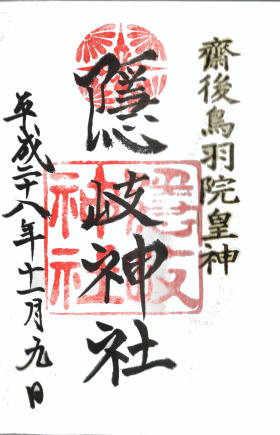 齋後鳥羽院皇神
隠岐神社
平成二十八年十一月九日
隠岐神社